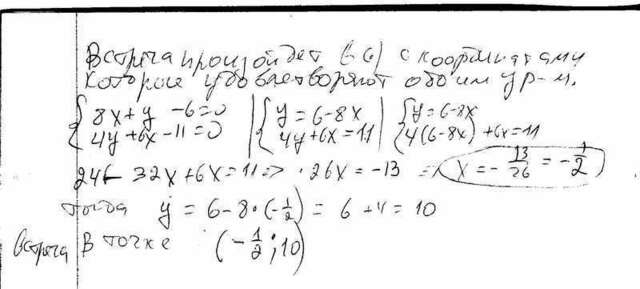 Встреча произойдет в (·) с координатами
которые удовлетворяют обоим ур-м.
{8x+y-6=0 | {y=6-8x | {y=6-8x
{4y+6x-11=0 | {4y+6x=11 | {4(6-8x)+6x=11
24-32x+6x=11 => ·26x=-13 => x=-13/26=-1/2
тогда y=6-8·(-1/2)=6+4=10
встреча в точке (-1/2;10)